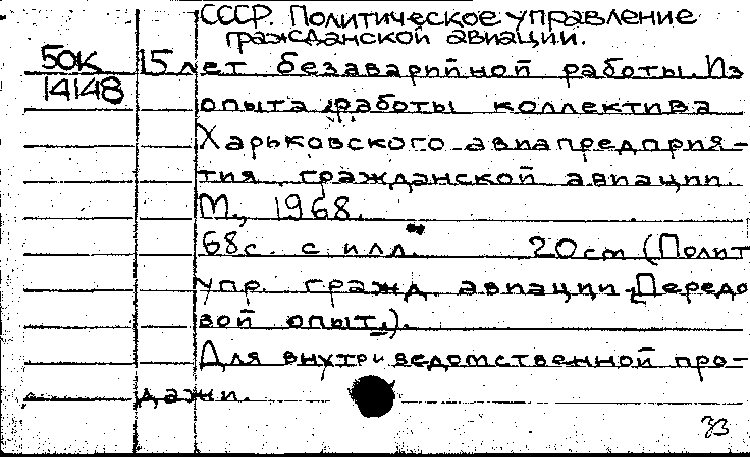 СССР. Политическое управление
гражданской авиации.
50К
14148
15 лет безаварийной работы. Из
опыта работы коллектива
Харьковского авиапредприя-
тия гражданской авиации.
М., 1968.
68с. с илл. 20 cm (Полит
упр. гражд. авиации. Передо
вой опыт.).
Для внутриведомственной про-
дажи.
33